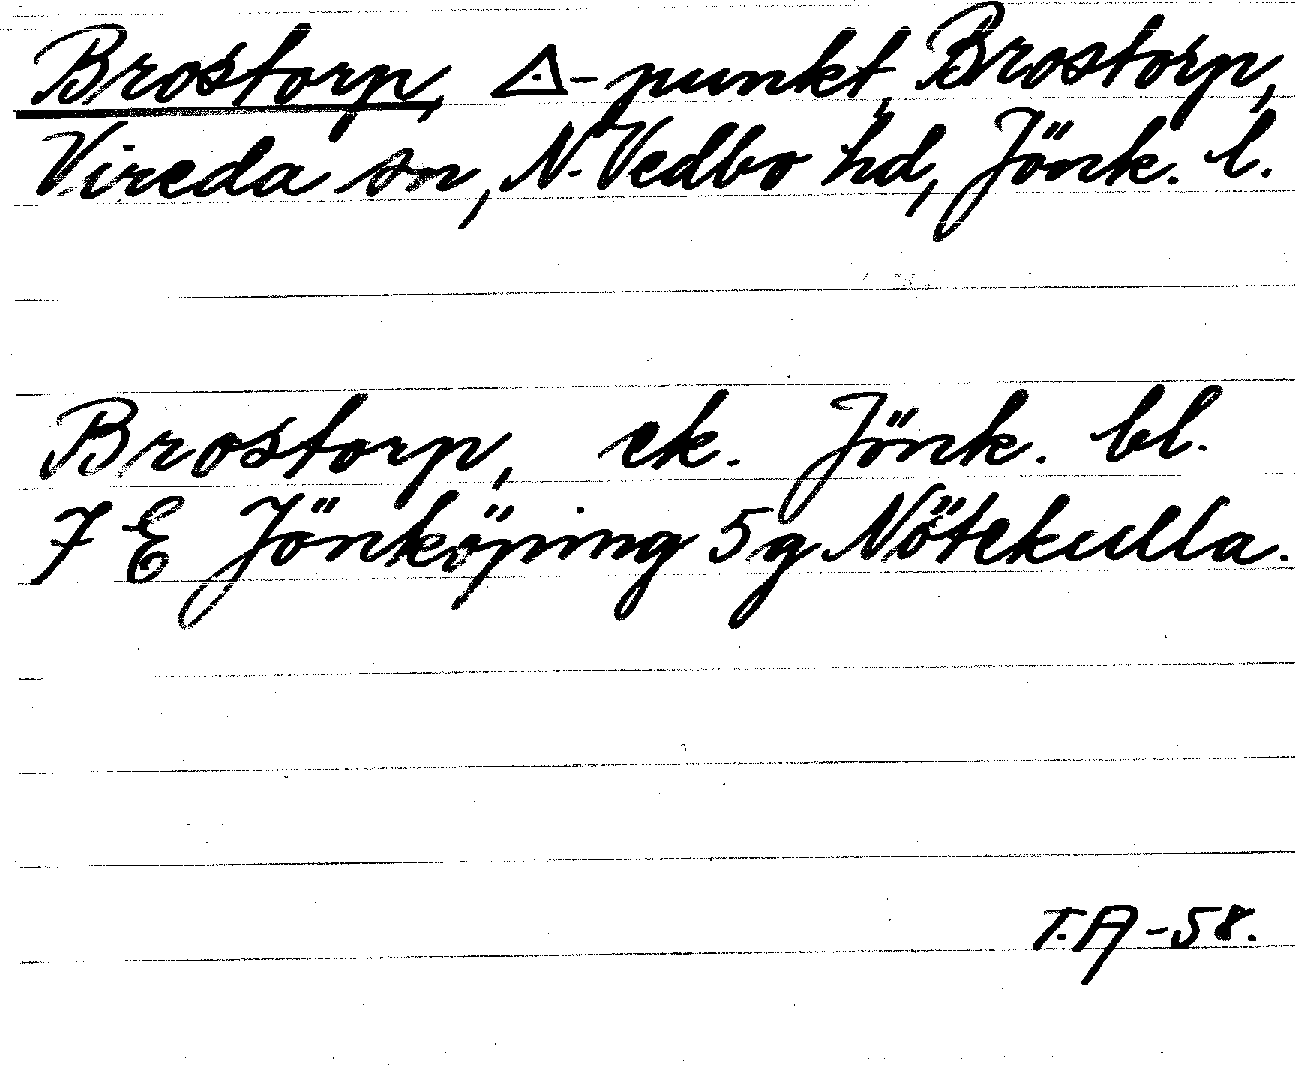 Brostorp, △-punkt, Brostorp,
Vireda sn, N. Vedbo hd, Jönk. l.
Brostorp, ek. Jönk. bl.
7 E Jönköping 5g Nötekulla.
T.A -58.